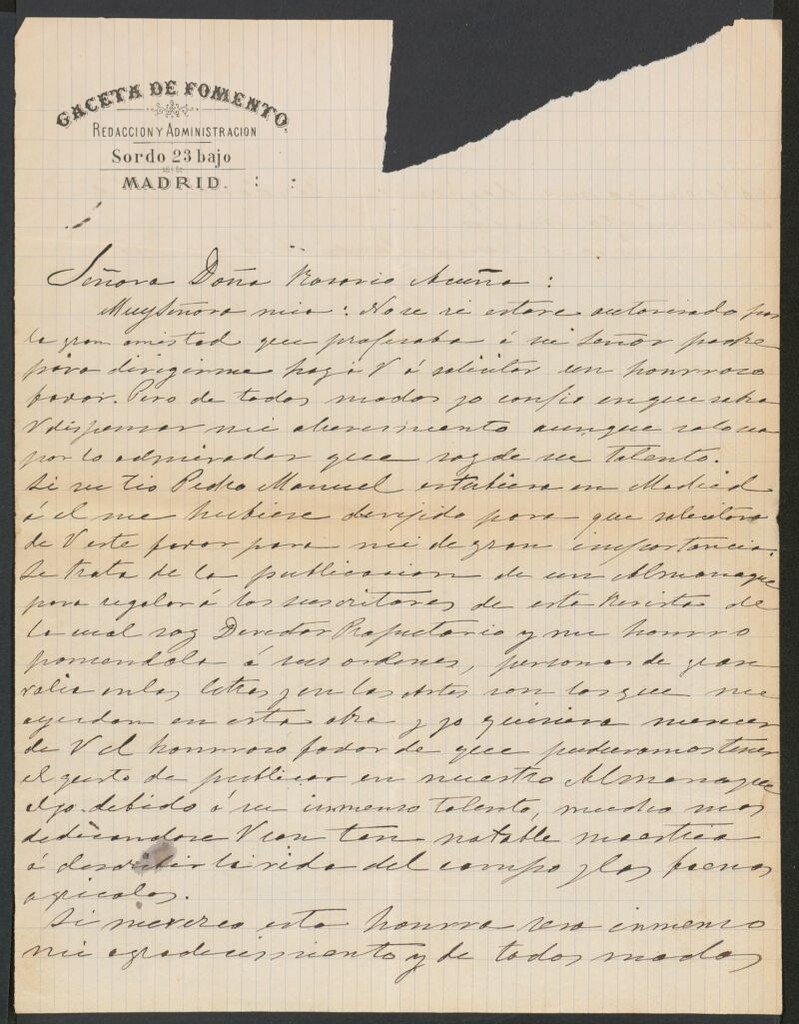 GACETA DE FOMENTO.
REDACCION Y ADMINISTRACION
Sordo 23 bajo
MADRID.
Señora Doña Rosario Acuña:
Muy Señora mia: No se si estare autorizado por
la gran amistad que profesaba á su Señor padre
para dirigirme hoy á V á solicitar un honrroso
favor. Pero de todos modos yo confio en que sabra
V dispensar mi atrevimiento aunque solo sea
por lo admirador que soy de su talento.
Si su tio Pedro Manuel estubiera en Madrid
á el me hubiese dirijido para que solicitara
de V este favor para mi de gran importancia.
Se trata de la publicacion de un Almanaque
para regalar á los suscritores de esta Revista de
la cual soy Director Propietario y me honrro
poniendola á sus ordenes, personas de gran
valia en las letras y en las Artes son los que me
ayudan en esta obra y yo quisiera merecer
de V el honrroso favor de que pudieramos tener
el gusto de publicar en nuestro Almanaque
algo debido á su inmenso talento, mucho mas
dedicandose V con tan notable maestria
á describir la vida del campo y las faenas
agricolas.
Si merezco esta honrra sera inmenso
mi agradecimiento y de todos modos